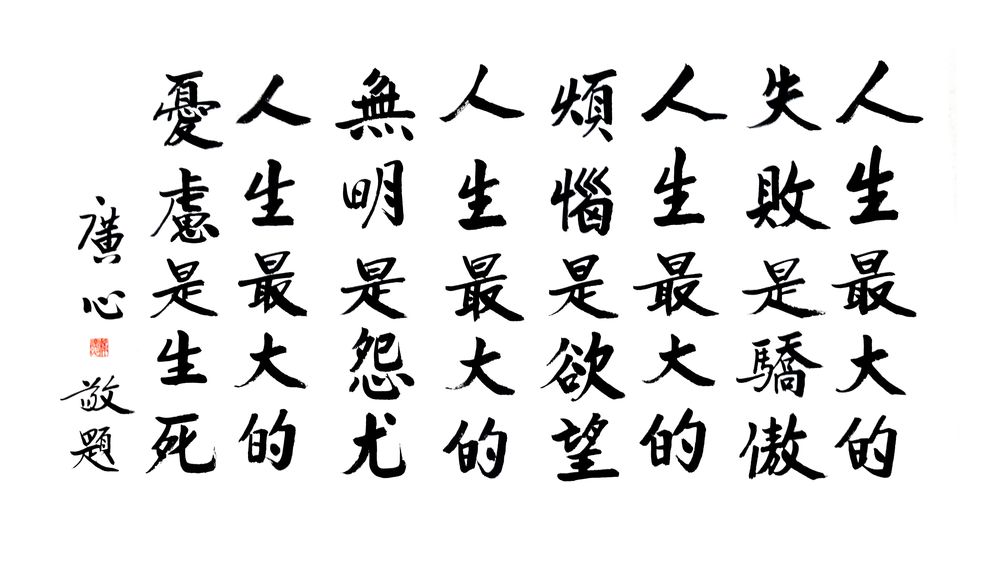 人生最大的
失敗是驕傲
人生最大的
煩惱是欲望
人生最大的
無明是怨尤
人生最大的
憂慮是生死
廣心
敬題